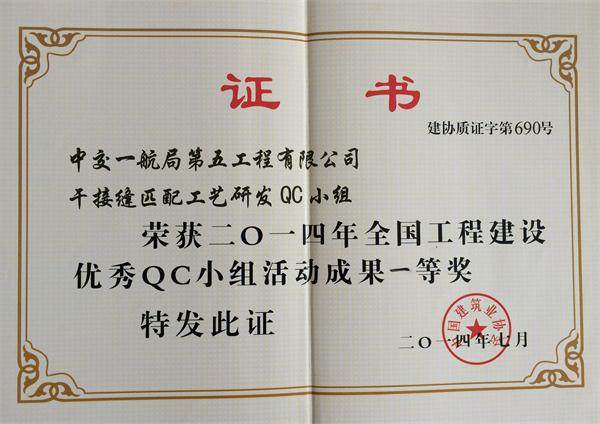 证 书
建协质证字第690号
中交一航局第五工程有限公司
干接缝匹配工艺研发QC小组
荣获二〇一四年全国工程建设
优秀QC小组活动成果一等奖
特发此证
中国建筑业协会
二〇一四年七月